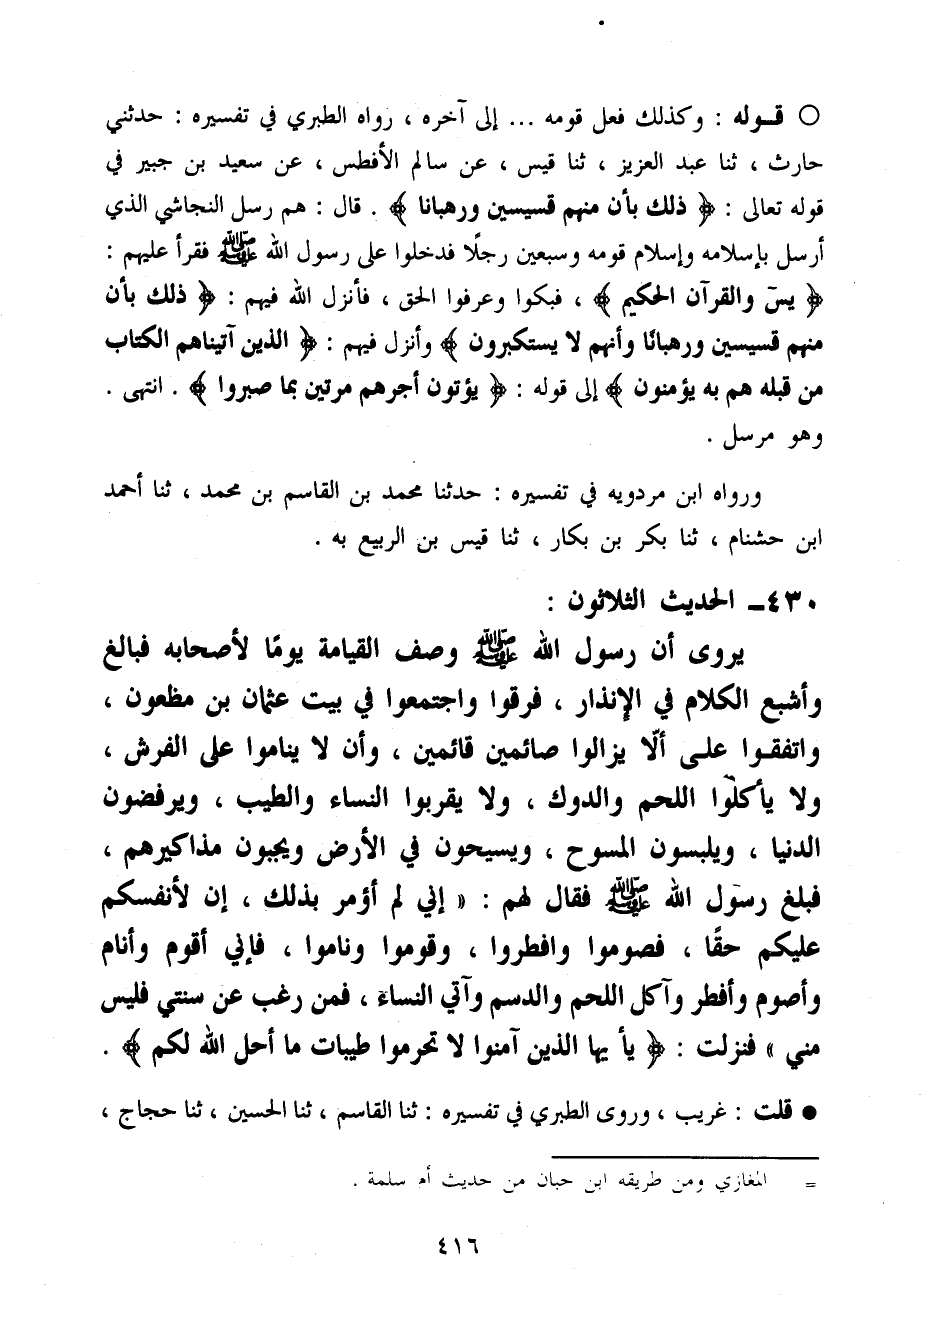 ○ قـوله : وكذلك فعل قومه ... إلى آخره ، رواه الطبري في تفسيره : حدثني
حارث ، ثنا عبد العزيز ، ثنا قيس ، عن سالم الأفطس ، عن سعيد بن جبير في
قوله تعالى : ﴿ ذلك بأن منهم قسيسين ورهبانا ﴾ . قال : هم رسل النجاشي الذي
أرسل بإسلامه وإسلام قومه وسبعين رجلًا فدخلوا على رسول الله ﷺ فقرأ عليهم :
﴿ يسَ والقرآن الحكيم ﴾ ، فبكوا وعرفوا الحق ، فأنزل الله فيهم : ﴿ ذلك بأن
منهم قسيسين ورهبانًا وأنهم لا يستكبرون ﴾ وأنزل فيهم : ﴿ الذين آتيناهم الكتاب
من قبله هم به يؤمنون ﴾ إلى قوله : ﴿ يؤتون أجرهم مرتين بما صبروا ﴾ . انتهى .
وهو مرسل .
ورواه ابن مردويه في تفسيره : حدثنا محمد بن القاسم بن محمد ، ثنا أحمد
ابن حشنام ، ثنا بكر بن بكار ، ثنا قيس بن الربيع به .
٤٣٠ـ الحديث الثلاثون :
يروى أن رسول الله ﷺ وصف القيامة يومًا لأصحابه فبالغ
وأشبع الكلام في الإنذار ، فرقوا واجتمعوا في بيت عثمان بن مظعون ،
واتفقـوا علـى ألّا يزالوا صائمين قائمين ، وأن لا يناموا على الفرش ،
ولا يأكلوا اللحم والدوك ، ولا يقربوا النساء والطيب ، ويرفضون
الدنيا ، ويلبسون المسوح ، ويسيحون في الأرض ويجبون مذاكيرهم ،
فبلغ رسول الله ﷺ فقال لهم : « إني لم أؤمر بذلك ، إن لأنفسكم
عليكم حقًا ، فصوموا وافطروا ، وقوموا وناموا ، فإني أقوم وأنام
وأصوم وأفطر وآكل اللحم والدسم وآتي النساء ، فمن رغب عن سنتي فليس
مني » فنزلت : ﴿ يأ يها الذين آمنوا لا تحرموا طيبات ما أحل الله لكم ﴾ .
● قلت : غريب ، وروى الطبري في تفسيره : ثنا القاسم ، ثنا الحسين ، ثنا حجاج ،
= المغازي ومن طريقه ابن حبان من حديث أم سلمة .
٤١٦